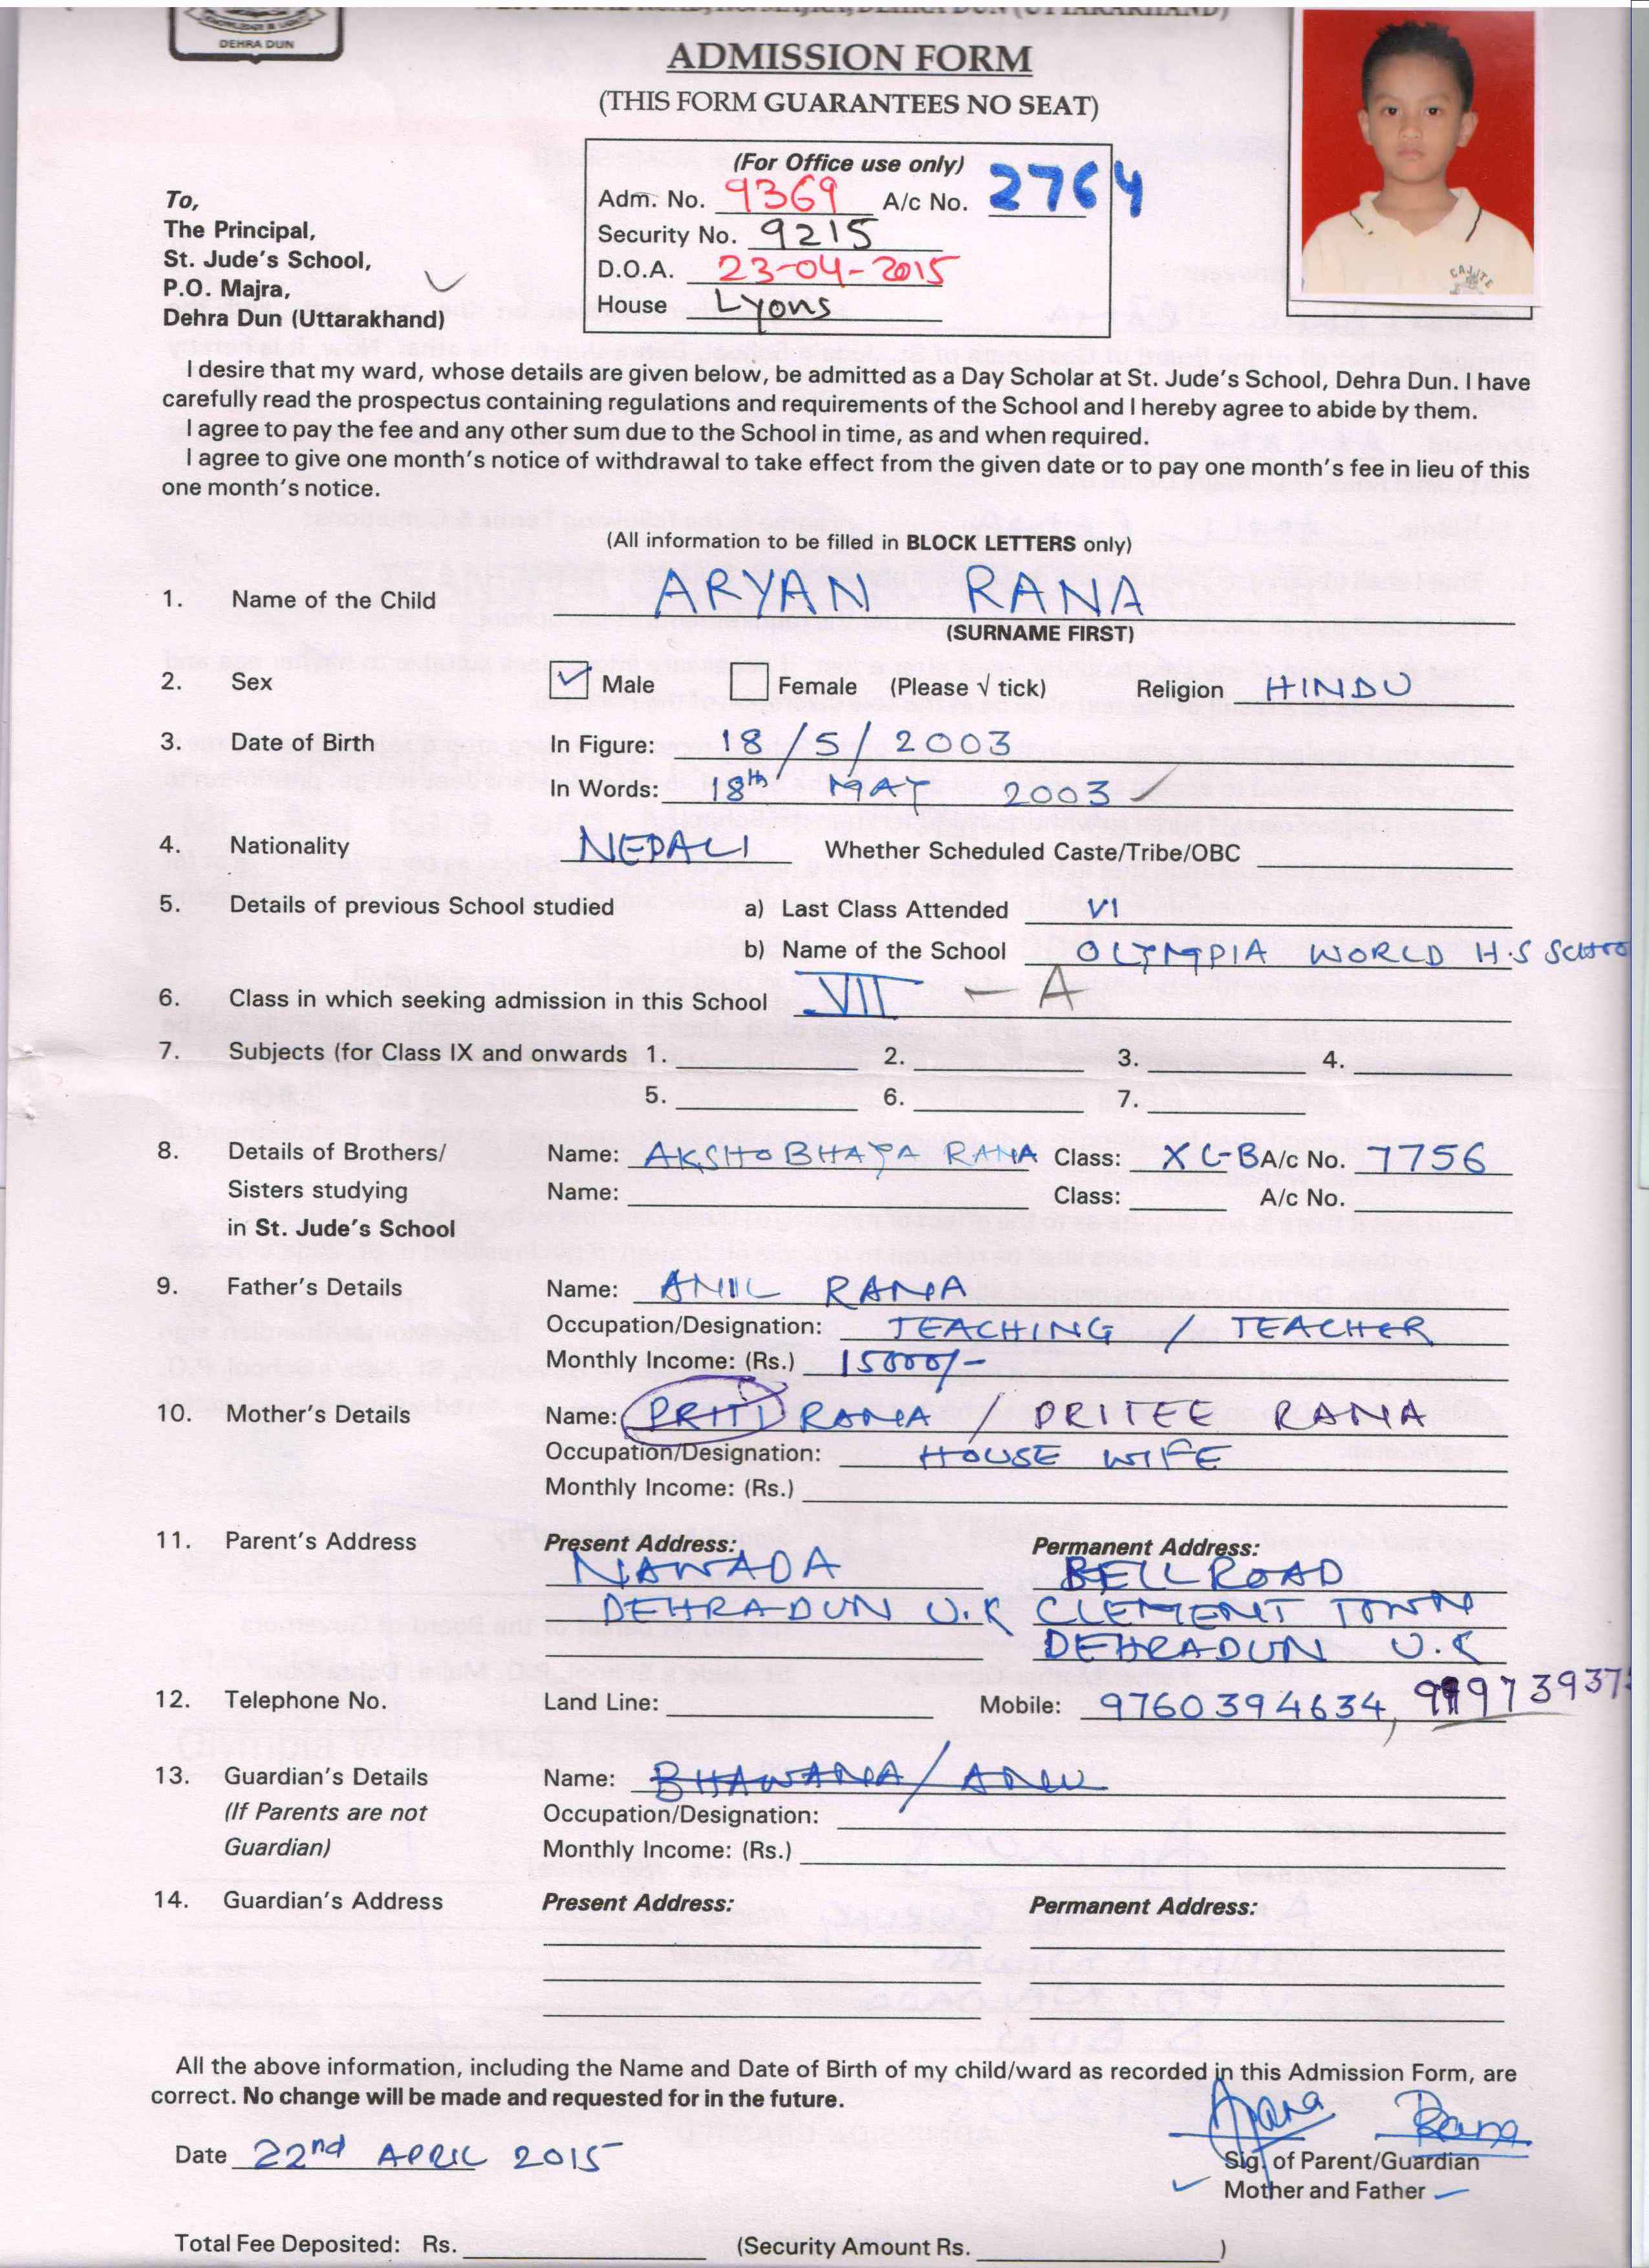 DEHRA DUN
ADMISSION FORM
(THIS FORM GUARANTEES NO SEAT)
(For Office use only)
Adm. No. 9369 A/c No. 2764
Security No. 9215
D.O.A. 23-04-2015
House Lyons
To,
The Principal,
St. Jude's School,
P.O. Majra,
Dehra Dun (Uttarakhand)
I desire that my ward, whose details are given below, be admitted as a Day Scholar at St. Jude's School, Dehra Dun. I have
carefully read the prospectus containing regulations and requirements of the School and I hereby agree to abide by them.
I agree to pay the fee and any other sum due to the School in time, as and when required.
I agree to give one month's notice of withdrawal to take effect from the given date or to pay one month's fee in lieu of this
one month's notice.
(All information to be filled in BLOCK LETTERS only)
1. Name of the Child ARYAN RANA
(SURNAME FIRST)
2. Sex Male Female (Please √ tick) Religion HINDU
3. Date of Birth In Figure: 18/5/2003
In Words: 18th MAY 2003
4. Nationality NEPALI Whether Scheduled Caste/Tribe/OBC
5. Details of previous School studied a) Last Class Attended VI
b) Name of the School OLYMPIA WORLD H.S SCHOO
6. Class in which seeking admission in this School VII - A
7. Subjects (for Class IX and onwards 1. 2. 3. 4.
5. 6. 7.
8. Details of Brothers/ Name: AKSHOBHAYA RANA Class: X C-B A/c No. 7756
Sisters studying Name: Class: A/c No.
in St. Jude's School
9. Father's Details Name: ANIL RANA
Occupation/Designation: TEACHING / TEACHER
Monthly Income: (Rs.) 15000/-
10. Mother's Details Name: PRITI RANA / PRITEE RANA
Occupation/Designation: HOUSE WIFE
Monthly Income: (Rs.)
11. Parent's Address Present Address: Permanent Address:
NAWADA BELL ROAD
DEHRADUN U.K CLEMENT TOWN
DEHRADUN U.K
12. Telephone No. Land Line: Mobile: 9760394634,
13. Guardian's Details Name: BHAWANA / ANU
(If Parents are not Occupation/Designation:
Guardian) Monthly Income: (Rs.)
14. Guardian's Address Present Address: Permanent Address:
All the above information, including the Name and Date of Birth of my child/ward as recorded in this Admission Form, are
correct. No change will be made and requested for in the future.
Date 22nd APRIL 2015
Rana
Sig. of Parent/Guardian
Mother and Father
Total Fee Deposited: Rs. (Security Amount Rs. )